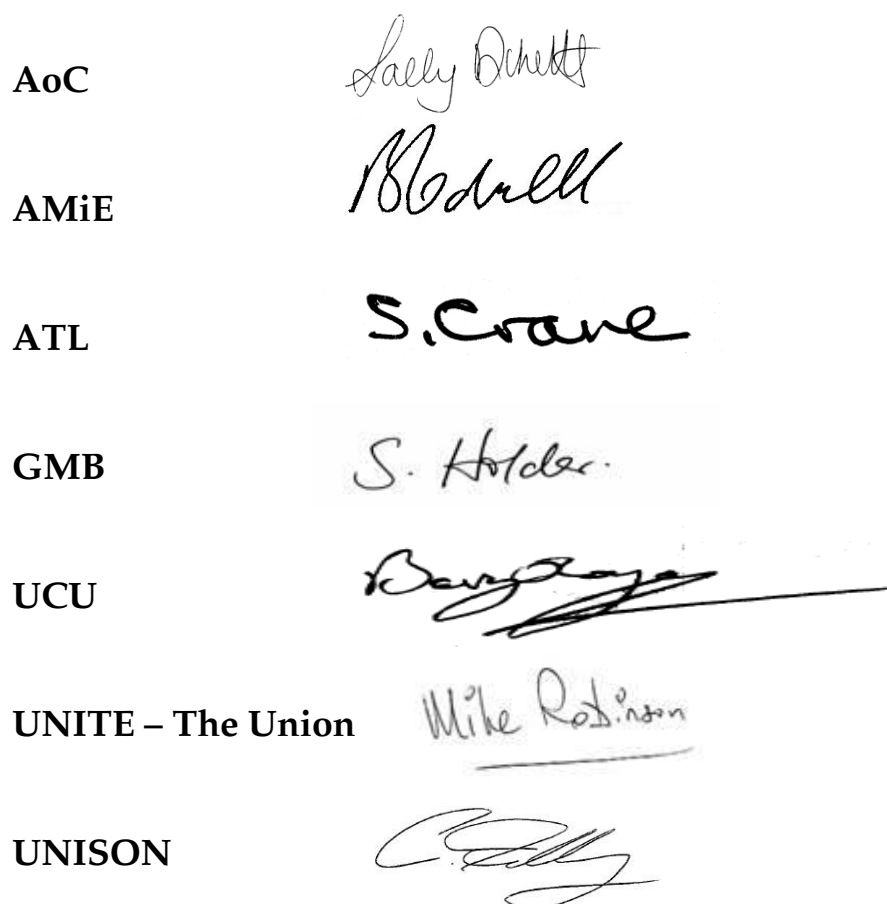 AoC Sally
AMiE
ATL S. Crane
GMB S. Holder.
UCU
UNITE – The Union Mike Robinson
UNISON